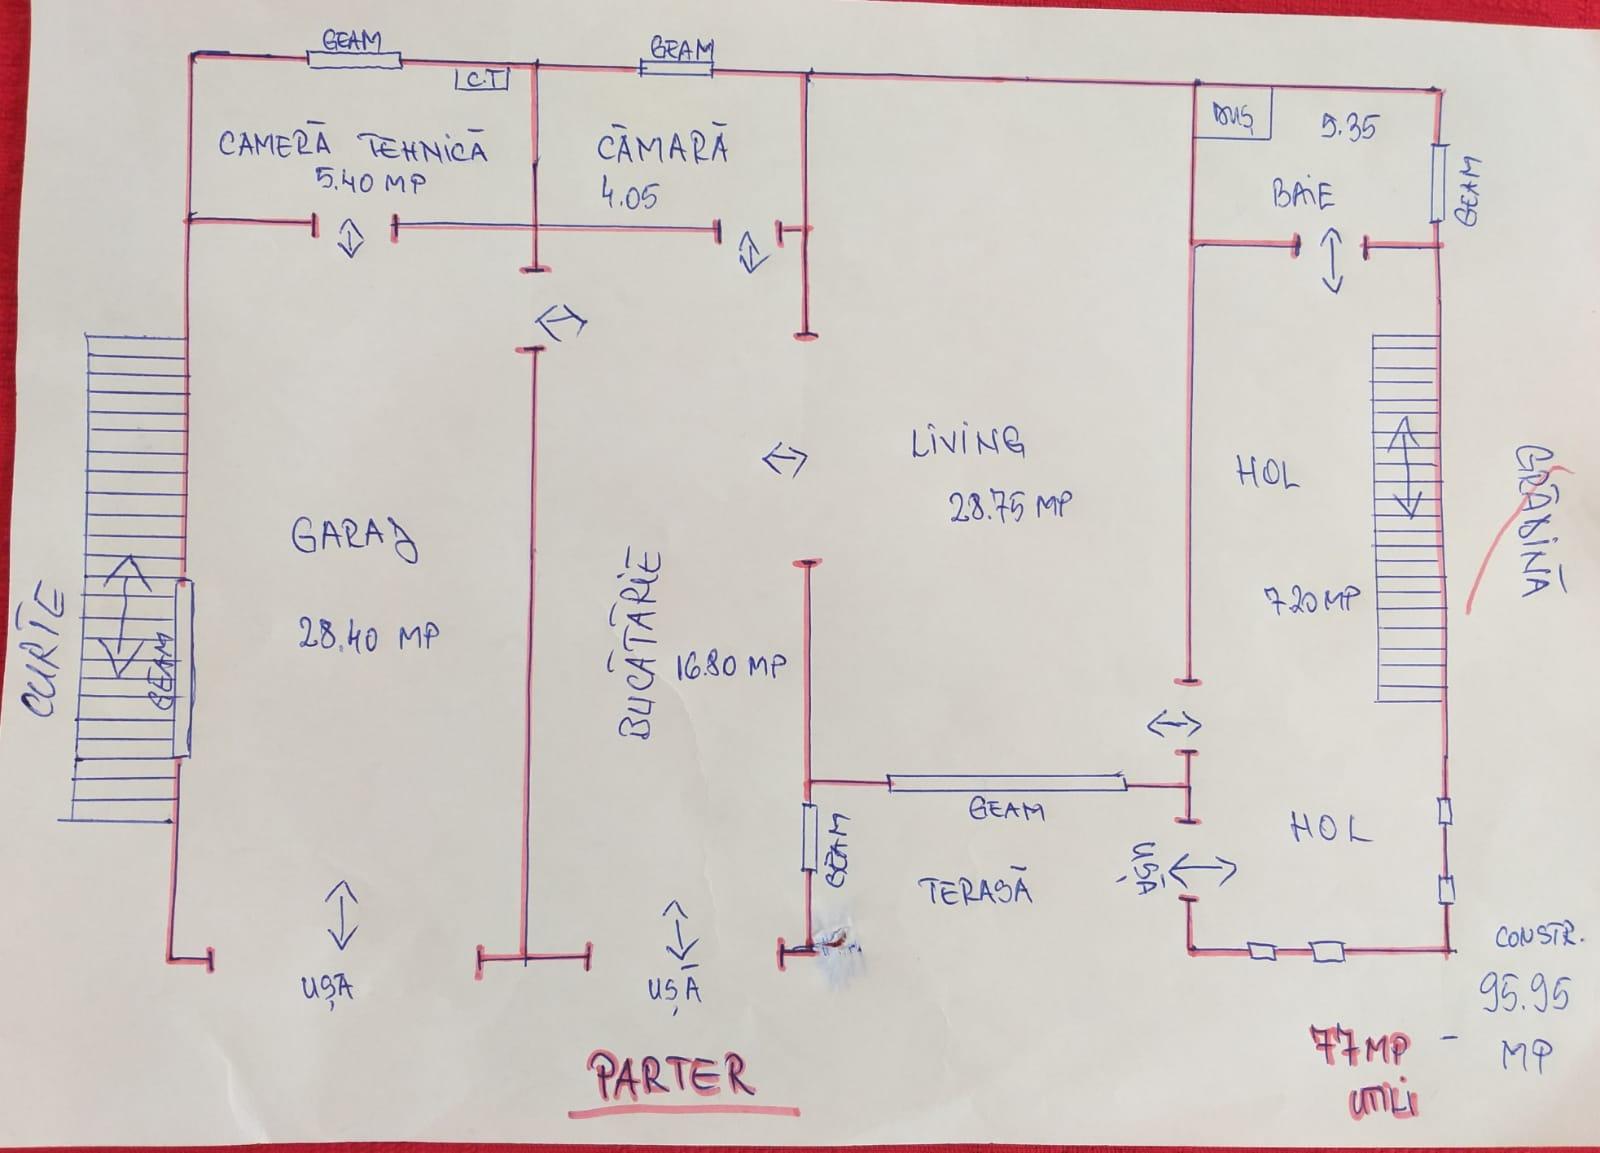 GEAM
GEAM
C.T
DUȘ
5.35
CAMERĂ TEHNICĂ
5.40 MP
CĂMARĂ
4.05
BAIE
GEAM
LIVING
28.75 MP
HOL
7.20 MP
GRĂDINĂ
GARAJ
28.40 MP
BUCĂTĂRIE
16.80 MP
CURTE
GEAM
GEAM
GEAM
TERASĂ
UȘĂ
HOL
UȘĂ
UȘĂ
CONSTR.
95.95
MP
77 MP -
UTILI
PARTER